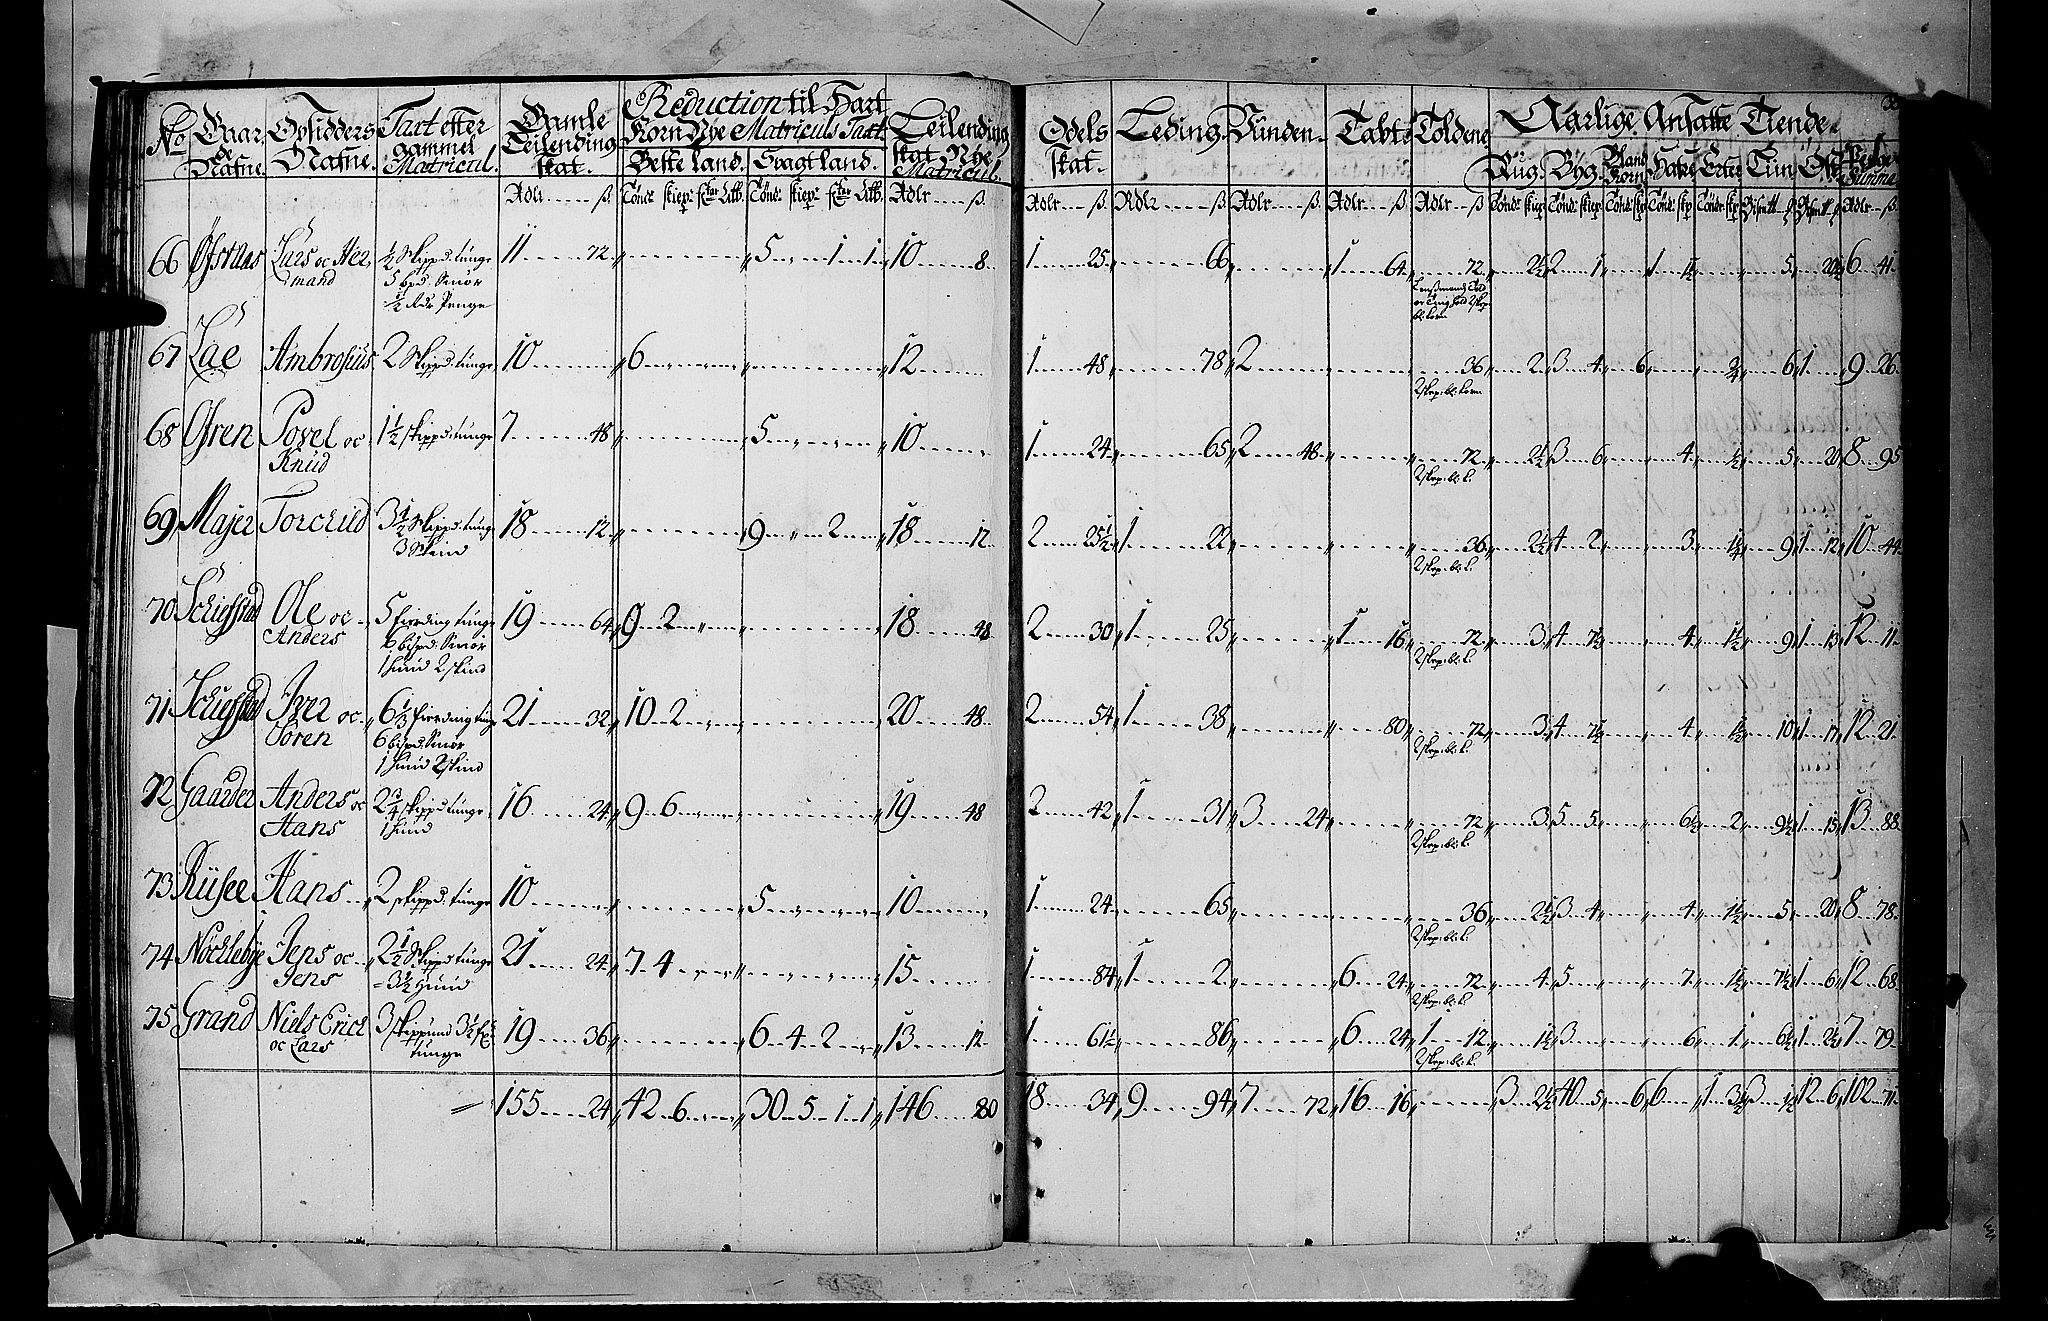 No Gaardenes Nafne. Opsidders Nafne. Taxt efter gammel Matricul. Gamle Leilending skat. Reduction til Hart Korn Nye Matriculs Taxt. Leilending skat Nye Matricul.
Beste land. Svagt land.
Rdlr ß. Tønd: skiep: Rdlr ß.
66 Lars oc Her mand ½ Skippd: tunge 11 72 5 1 1 10 8
5 bpd: Smør
½ Rdr Penge
67 Lae Ambrosius 2 Skippd: tunge 10 6 12
68 Ofren Povel oc 1½ skippd: tunge 7 48 5 10
Knud
69 Majer Torchild 3½ Skippd: tunge 18 12 9 2 18 12
3 Skind
70 Schiefstad Ole oc 5 fierding tunge 19 64 9 2 18 48
Anders 6 bispd: Smør
1 huud 2 skind
71 Schiefstad Iver oc 6⅓ fierding tung 21 32 10 2 20 48
Soren 6 bispd: Smør
1 huud 2 skind
72 Gaarder Anders oc 2¾ skippd: tunge 16 24 9 6 19 48
Hans 1 huud
73 Riisee Hans 2 skippd: tunge 10 5 10
74 Nochlebye Jens oc 2½ Skippd tunge 21 24 7 4 15
Jens 3½ Huud
75 Grand Niels Erich 3 skippund 3½ 19 36 6 4 2 13 12
oc Lars tunge
155 24 42 6 30 5 1 1 146 80
Odels skat. Leding Vünden Tabte Toldene Aarlige Ansatte Tiende.
Rug Byg Bland Korn Hafre Erter Penge Summa
Rdlr ß. Rdlr ß. Rdlr ß. Rdlr ß. Rdlr ß. Rdlr ß
1 25 66 1 64 72 2½ 2 1 1 1½ 5 20½ 6 41
1 48 78 2 36 2 3 4 6 ¾ 6 1 9 26
2 skep: bl: korn
1 24 65 2 48 72 2½ 3 6 4 1½ 5 20 8 95
2 skep: bl: k:
2 25½ 1 22 36 2½ 4 2 3 1¼ 9 1 12 10 44
2 skep: bl: k:
2 30 1 25 1 16 72 3 4 7½ 4 1½ 9 1 13 12 11
2 skep: bl: k:
2 54 1 38 80 72 3 4 7½ 4 1½ 10 1 17 12 21
2 skep: bl: k:
2 42 1 31 3 24 72 3 5 5 6½ 2 9½ 1 15 13 88
2 skep: bl: k:
1 24 65 36 2½ 3 4 4 1½ 5 20 8 78
2 skep: bl: k:
1 84 1 2 6 24 72 4 5 7 1½ 7½ 1 6 12 68
2 skep: bl: k:
1 61½ 86 6 24 1 12 1½ 3 6 1 6½ 1 2½ 7 79
2 skep: bl: k:
18 34 9 94 7 72 16 16 3 2½ 40 5 6 6 1 3½ 3 ½ 12 6 102 71